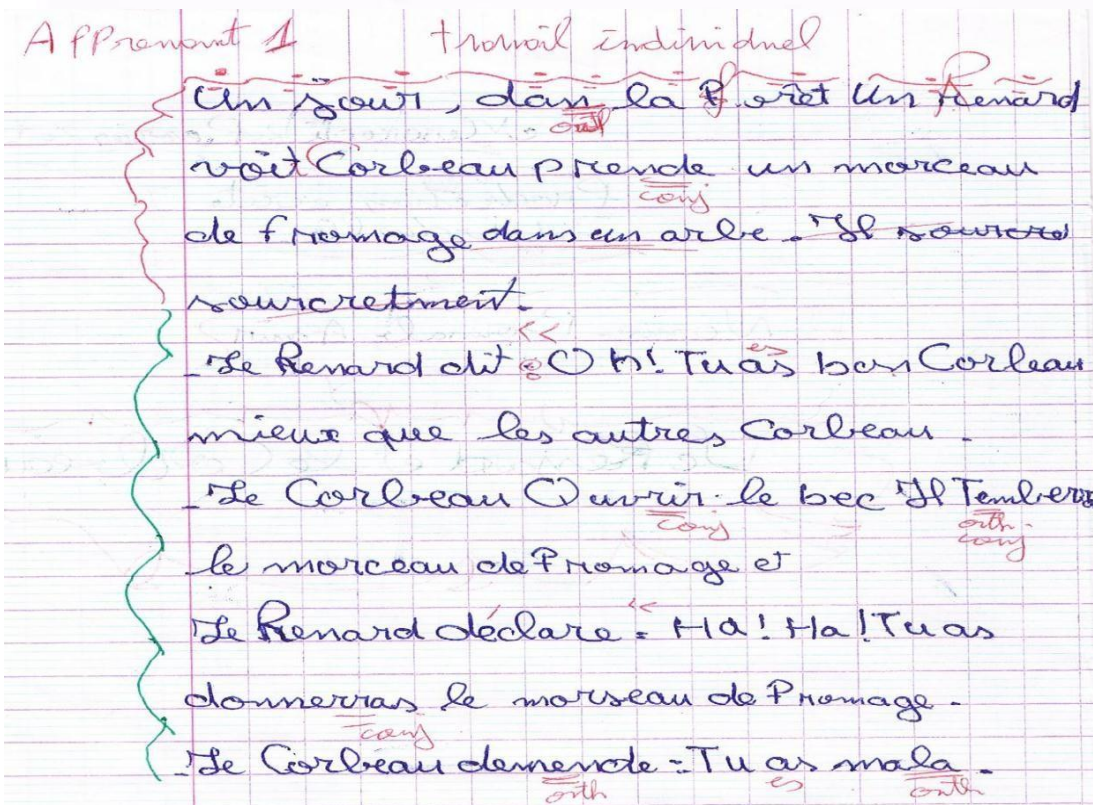 Apprenant 1 travail individuel
Un jour, dans la Foret Un Renard
orth
voit Corbeau prende un morceau
conj
de fromage dans un arbe. Il
sourcretment.
<<
es
Le Renard dit : Oh! Tu as bon Corbeau
mieux que les autres Corbeau.
Le Corbeau Ouvrir le bec Il Tembera
conj orth.
conj
le morceau de Fromage et
<<
Le Renard déclare : Ha! Ha! Tu as
donnerras le morseau de Fromage.
conj
Le Corbeau demende : Tu as mala.
orth es orth